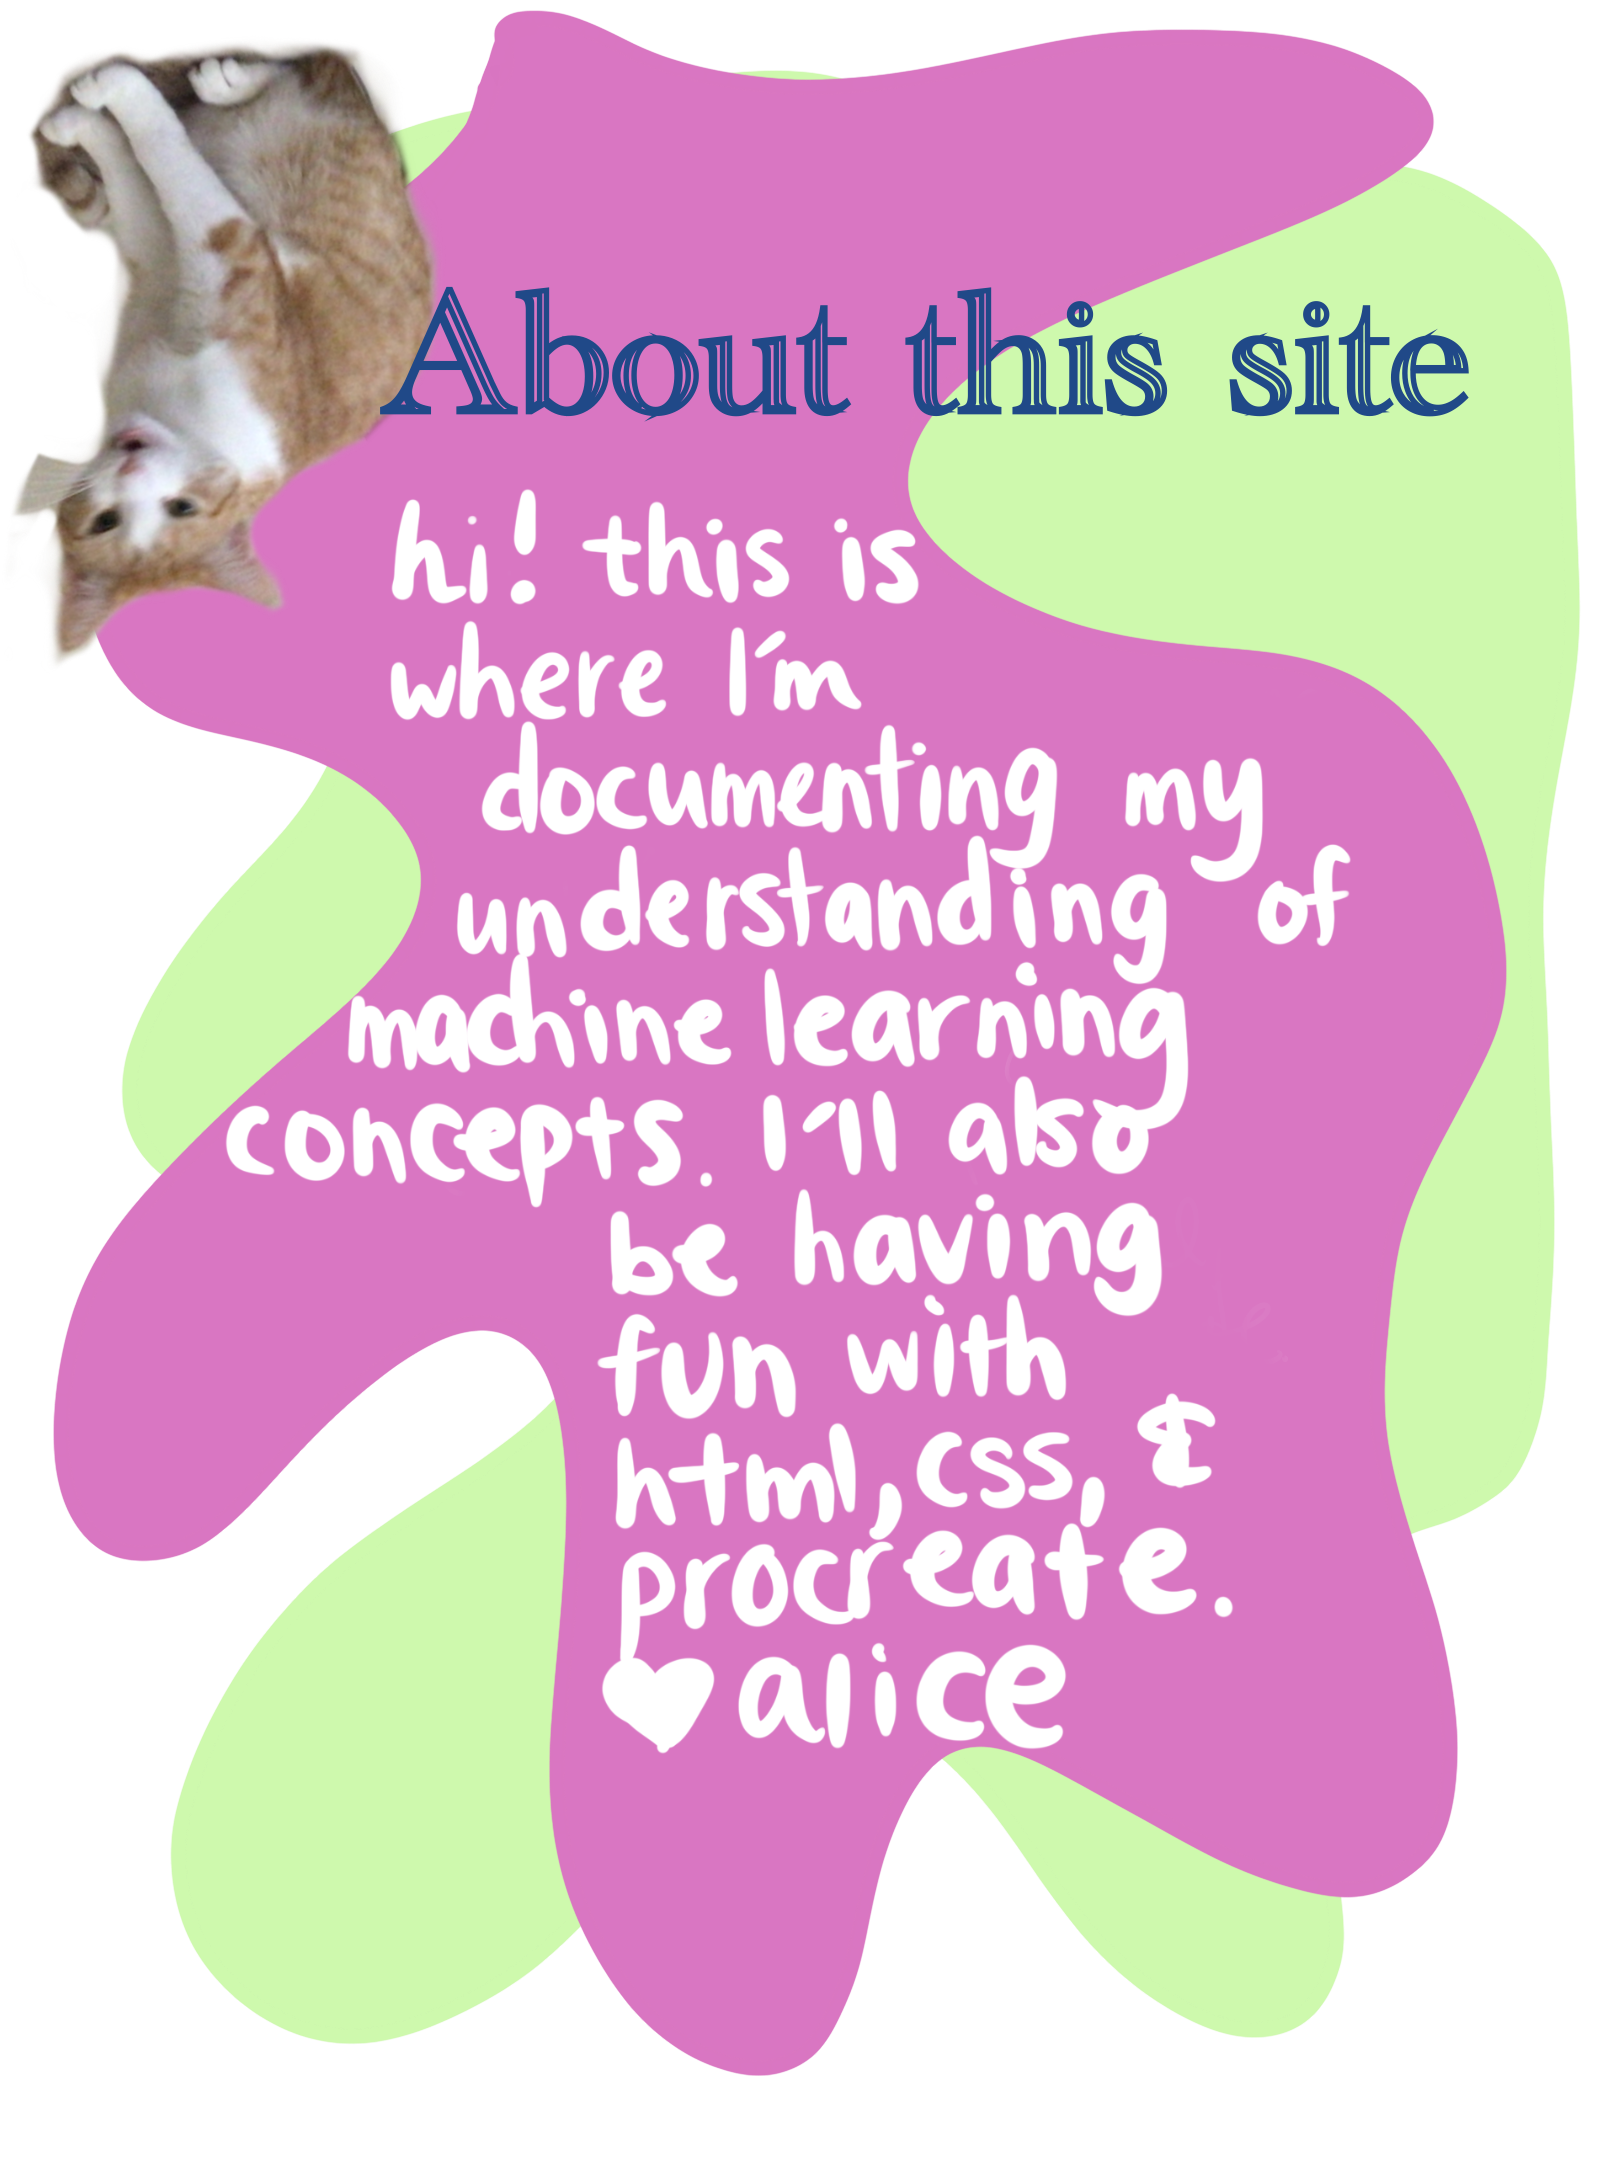 About this site
hi! this is
where I'm
documenting my
understanding of
machine learning
concepts. I'll also
be having
fun with
html, css, &
procreate.
♥ alice